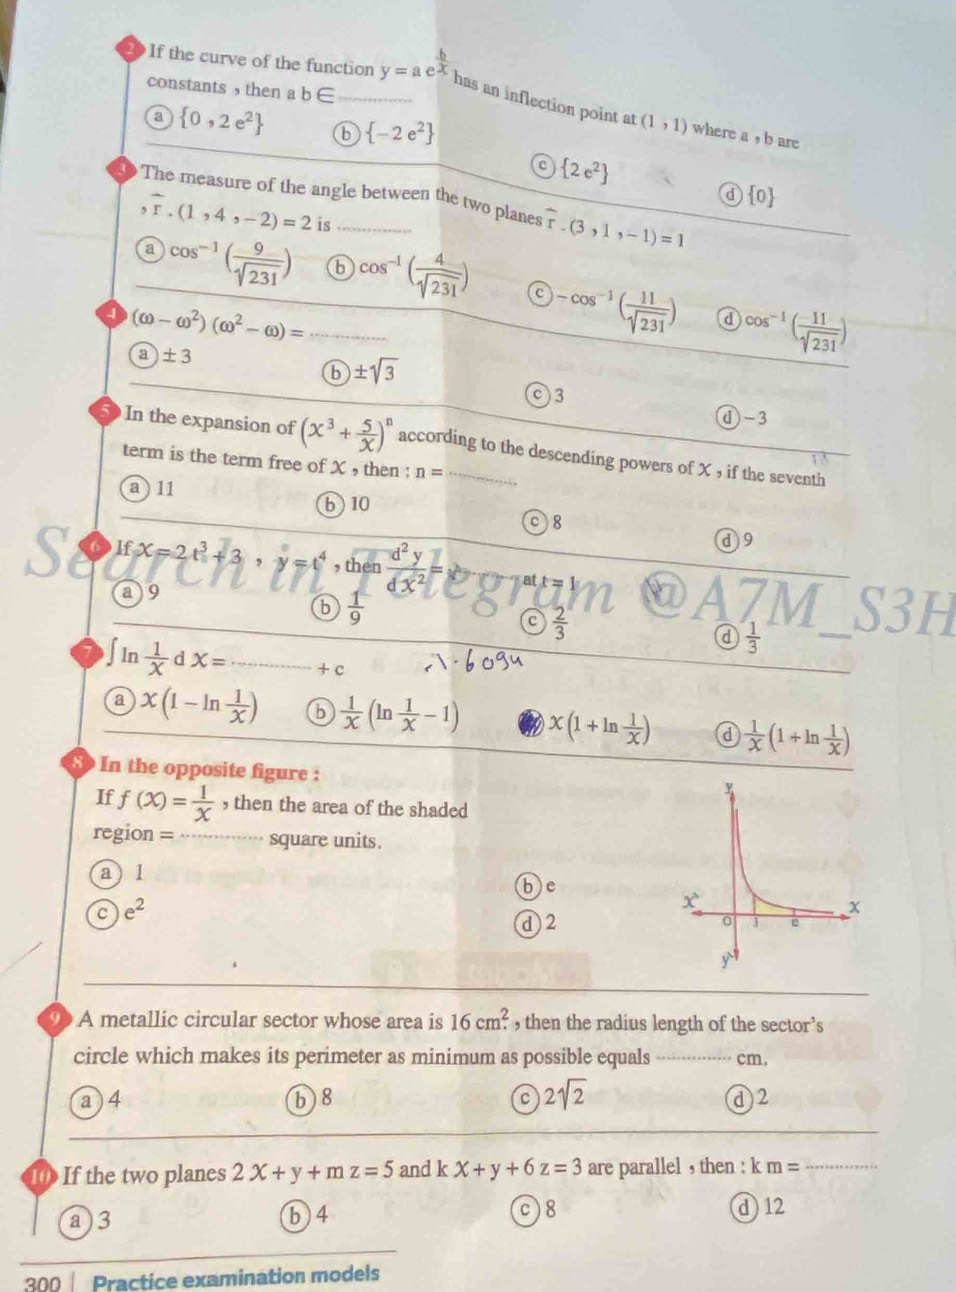 2 If the curve of the function y = a e^(b/x) has an inflection point at (1 , 1) where a , b are
constants , then a b ∈ ............
a {0 , 2 e²} b {– 2 e²} c {2 e²} d {0}
3 The measure of the angle between the two planes r . (3 , 1 , – 1) = 1
, r . (1 , 4 , – 2) = 2 is ............
a cos⁻¹ (9/√231) b cos⁻¹ (4/√231) c – cos⁻¹ (11/√231) d cos⁻¹ (11/√231)
4 (ω – ω²) (ω² – ω) = ............
a ± 3 b ± √3 c 3 d – 3
5 In the expansion of (x³ + 5/x)ⁿ according to the descending powers of x , if the seventh
term is the term free of x , then : n = ............
a 11 b 10 c 8 d 9
6 If x = 2 t³ + 3 , y = t⁴ , then d²y/dx² = ............ at t = 1
a 9 b 1/9 c 2/3 d 1/3
Search in Telegram @A7M_S3H
7 ∫ ln 1/x d x = ............ + c
a x (1 – ln 1/x) b 1/x (ln 1/x – 1) c x (1 + ln 1/x) d 1/x (1 + ln 1/x)
8 In the opposite figure :
If f (x) = 1/x , then the area of the shaded
region = ............ square units.
a 1 b e
c e² d 2
y
x` O 1 e x
y`
9 A metallic circular sector whose area is 16 cm². , then the radius length of the sector's
circle which makes its perimeter as minimum as possible equals ............ cm.
a 4 b 8 c 2√2 d 2
10 If the two planes 2 x + y + m z = 5 and k x + y + 6 z = 3 are parallel , then : k m = ............
a 3 b 4 c 8 d 12
300 | Practice examination models